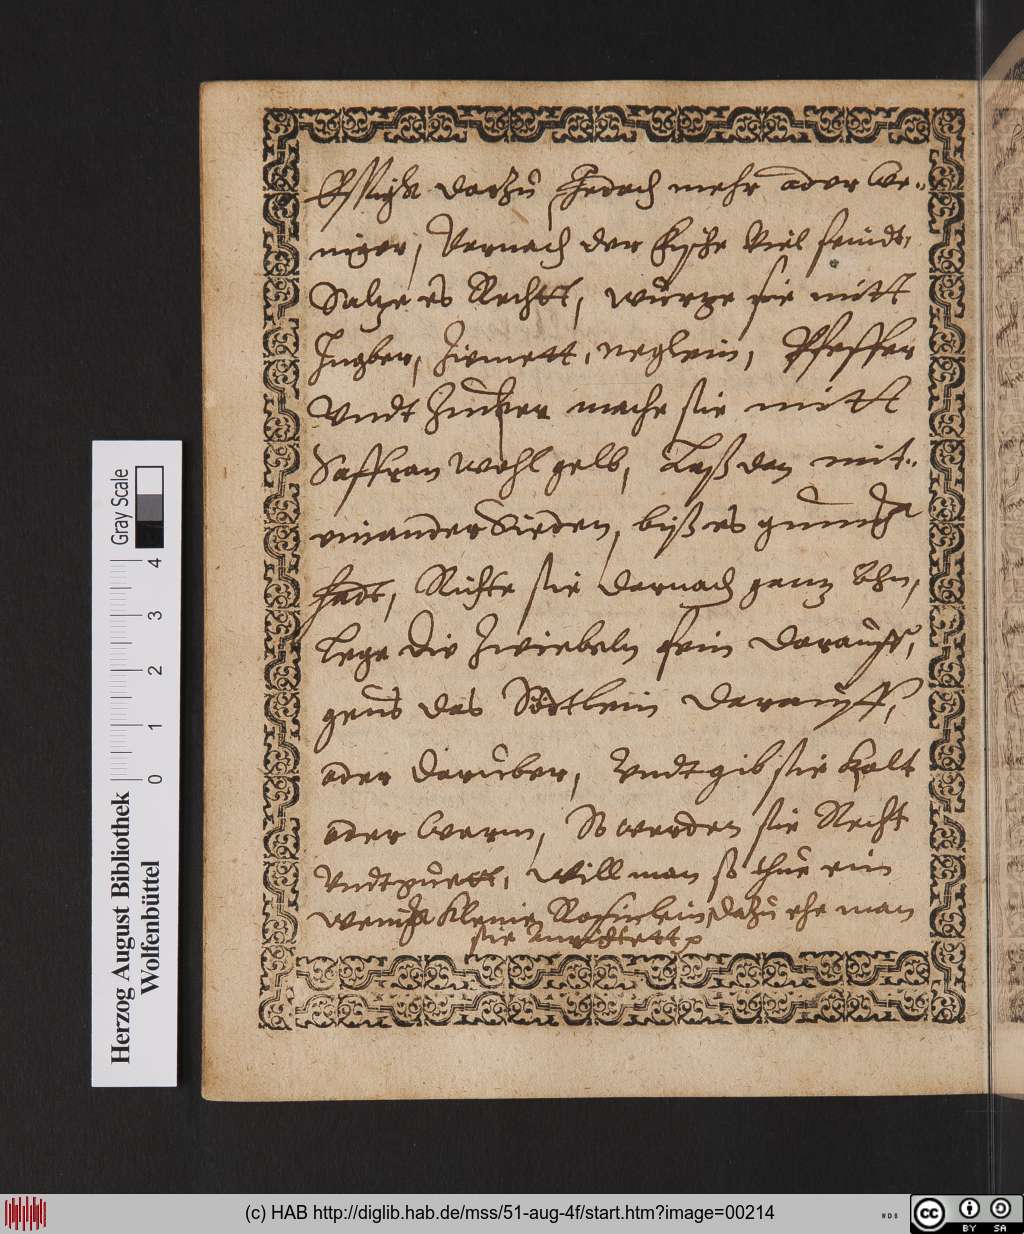 Essigk darzů Jedoch mehr ader we-
niger, Darnach der Fische Viel seindt,
Saltze es Rechtt, würtze sie mitt
Ingber, Zimett, neglein, Pfeffer
Vndt Zucker mache sie mitt
Saffran wohl gelb, Laß dan mit-
einander Sieden, biß es genugk
hadt, Richte sie darnach gantz ahn,
Lege die Zwiebeln fein darauff,
geus das Södtlein darauff,
oder darüber, Vndt gib sie kalt
oder warm, So werden sie Recht
Vndt guett, Will man so thue ein
wenigk kleine Rosinlein dazu ehe man
sie Anrichtett
Herzog August Bibliothek
Wolfenbüttel
0 1 2 3 4
Gray Scale
(c) HAB http://diglib.hab.de/mss/51-aug-4f/start.htm?image=00214
WDB
cc BY SA